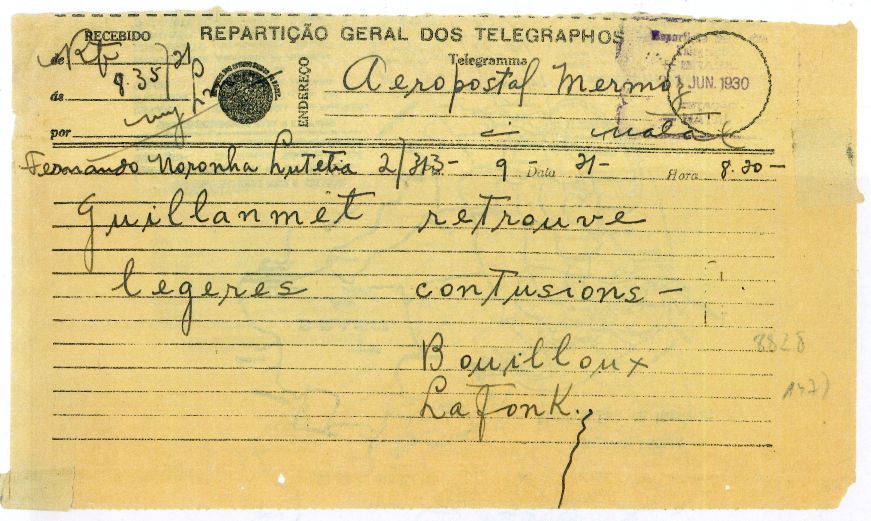 RECEBIDO
REPARTIÇÃO GERAL DOS TELEGRAPHOS
de
8.35 / 21
ás
por
ENDEREÇO
Telegramma
Aeropostal Mermoz
natal
21 JUN. 1930
Fernando Noronha Lutetia 2/313- 9- Data 21- Hora 8.20-
Guillanmet retrouve
legeres contusions-
Bouilloux
LafonK.
8828